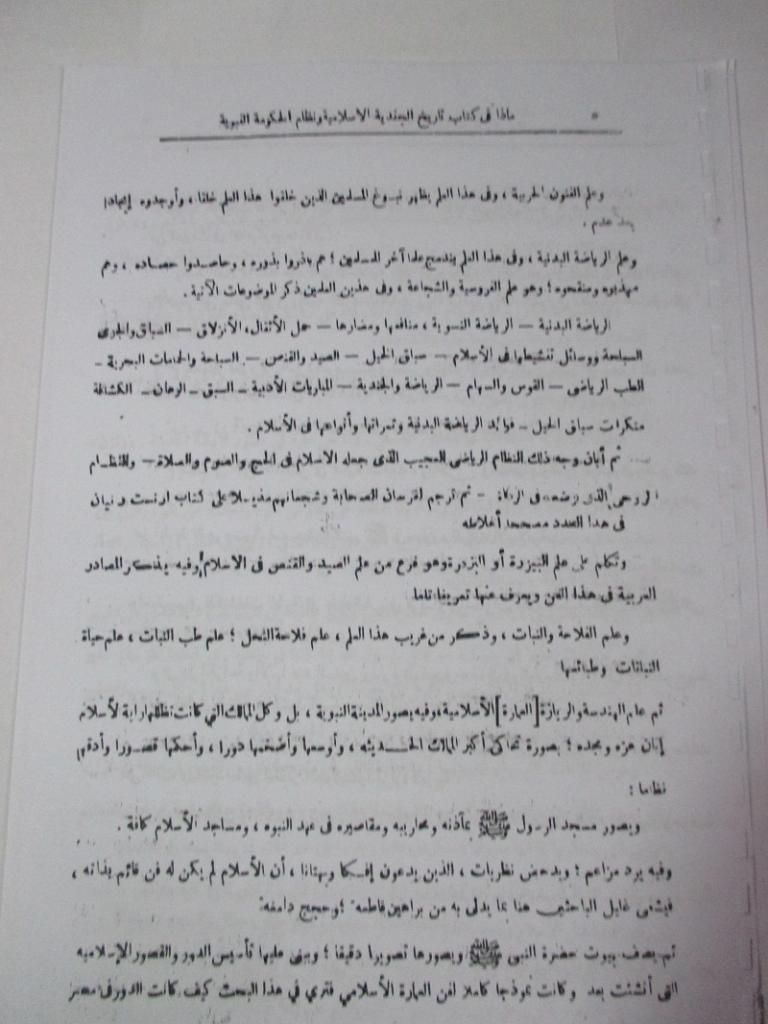 ماذا فى كتاب تاريخ الجندية الاسلامية ونظام الحكومة النبوية
وعلم الفنون الحربية ، وفى هذا العلم يظهر نبوغ المسلمين الذين خلقوا هذا العلم خلقا ، وأوجدوه إيجادا
بعد عدم .
وعلم الرياضة البدنية ، وفى هذا العلم يندمج علما آخر للمسلمين ؛ هم باذروا بذوره ، وحاصدوا حصاده ، وهم
مهذبوه ومنقحوه ؛ وهو علم الفروسية والشجاعة ، وفى هذين العلمين ذكر الموضوعات الآتية .
الرياضة البدنية — الرياضة النسوية ، منافعها ومضارها — حمل الأثقال ، الأنزلاق — السباق والجرى
السباحة ووسائل تنشيطها فى الأسلام — سباق الخيل — الصيد والقنص — السباحة والحمامات البحرية —
الطب الرياضى — القوس والسهام — الرياضة والجندية — المباريات الأدبية — السبق — الرهان — الكشافة
منكرات سباق الخيل — فوائد الرياضة البدنية وثمراتها وأنواعها فى الأسلام .
ثم أبان وجه ذلك النظام الرياضى العجيب الذى جعله الاسلام فى الحج والصوم والصلاة — والنظام
الروحى الذى وضعه فى الزكاة — ثم ترجم لفرسان الصحابة وشجعانهم مذيلا على كتاب ارنست
فى هذا الصدد مصححا أغلاطه
وتكلم على علم البيزرة أو البزدرة وهو فرع من علم الصيد والقنص فى الاسلام وفيه يذكر المصادر
العربية فى هذا الفن ويعرف عنها تعريفا تاما .
وعلم الفلاحة والنبات ، وذكر من غريب هذا العلم ، علم فلاحة النحل ؛ علم طب النبات ، علم حياة
النباتات وطبائعها
ثم علم الهندسة والريازة [العمارة] الأسلامية ، وفيه يصور المدينة النبوية ، بل وكل الممالك التى كانت تظللها راية لأسلام
إبان عزه ومجده ؛ بصورة تحاكى أكبر الممالك الحديثه ، وأوسعها وأضخمها دورا ، وأحكمها قصورا وأدقهم
نظاما :
ويصور مسجد الرسول ﷺ بمآذنه ومحاريبه ومقاصيره فى عهد النبوه ، ومساجد الأسلام كافة .
وفيه يرد مزاعم ؛ ويدحض نظريات ، الذين يدعون إفكا وبهتانا ، أن الأسلام لم يكن له فن قائم بذاته ،
فيشفى غليل الباحثين هنا بما يدلى به من براهين قاطعة ؛ وحجج دامغة :
ثم يصف بيوت حضرة النبى ﷺ ويصورها تصويرا دقيقا ؛ ويبنى عليها تأسيس الدور والقصور الإسلاميه
التى أنشئت بعد وكانت نموذجا كاملا لفن العمارة الأسلامي فترى في هذا البحث كيف كانت الدور فى مصر